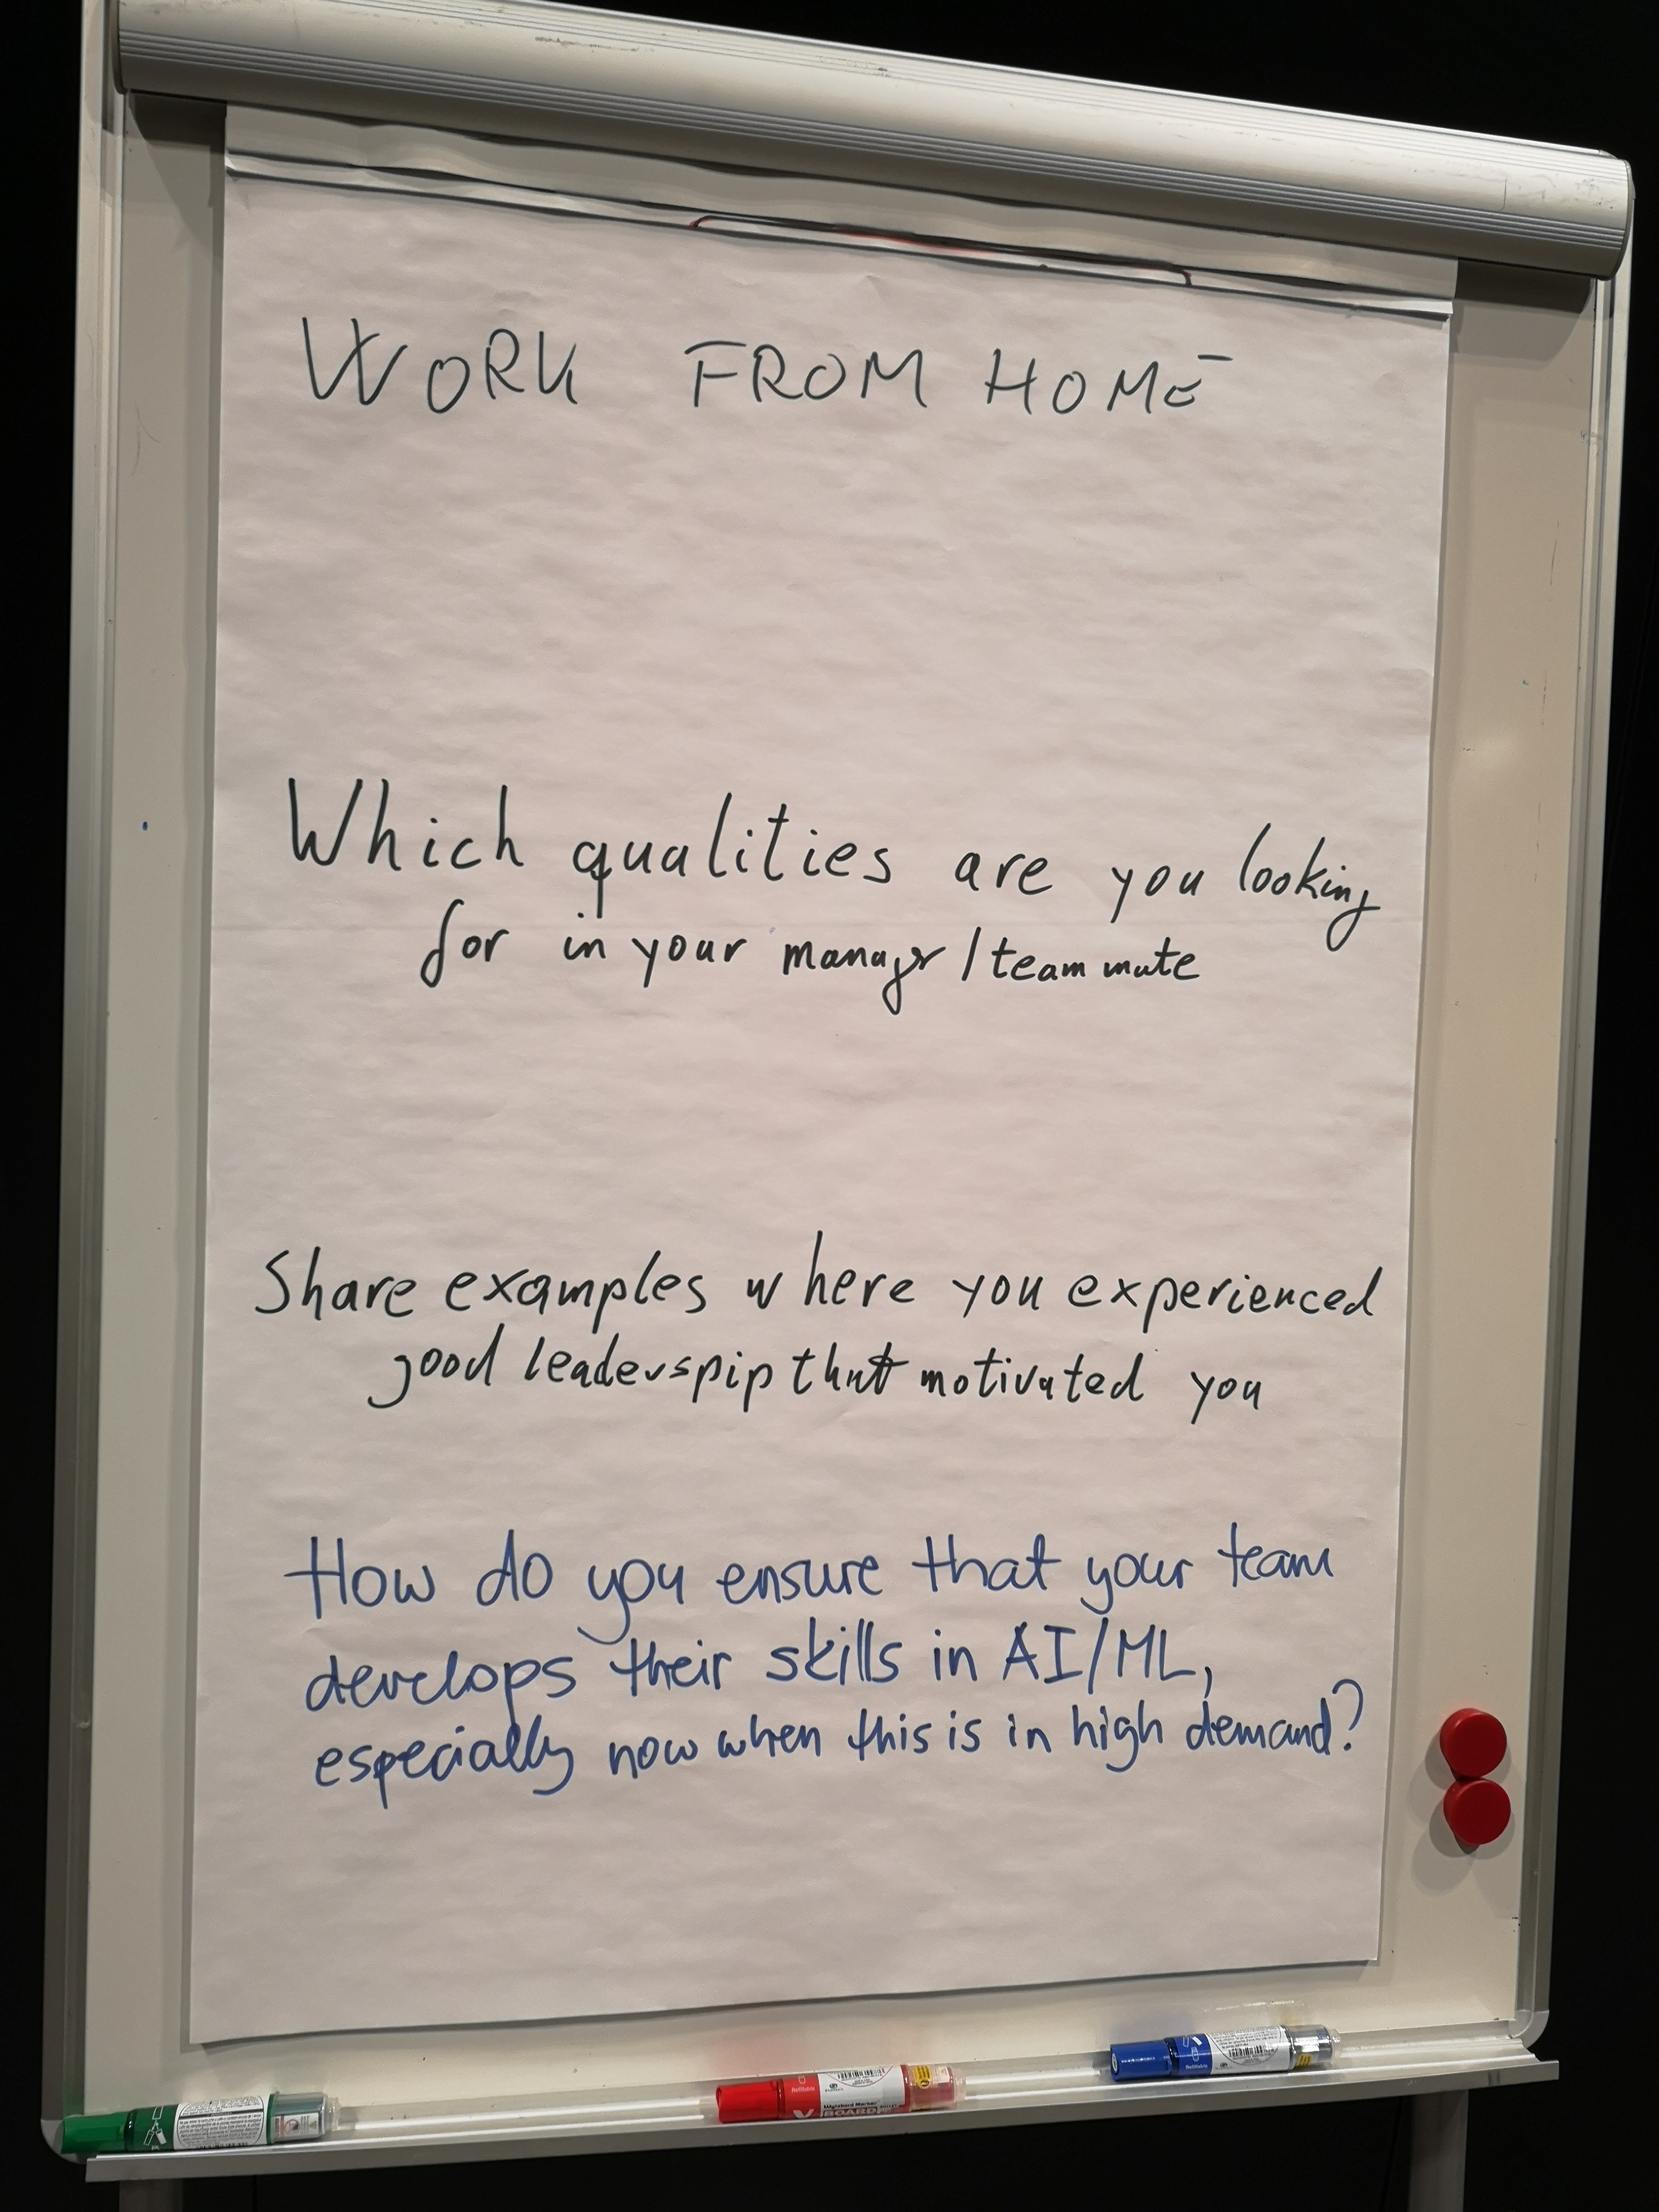 WORK FROM HOME
Which qualities are you looking
for in your manager / team mate
Share examples where you experienced
good leaderspip that motivated you
How do you ensure that your team
develops their skills in AI/ML,
especially now when this is in high demand?
BOARD